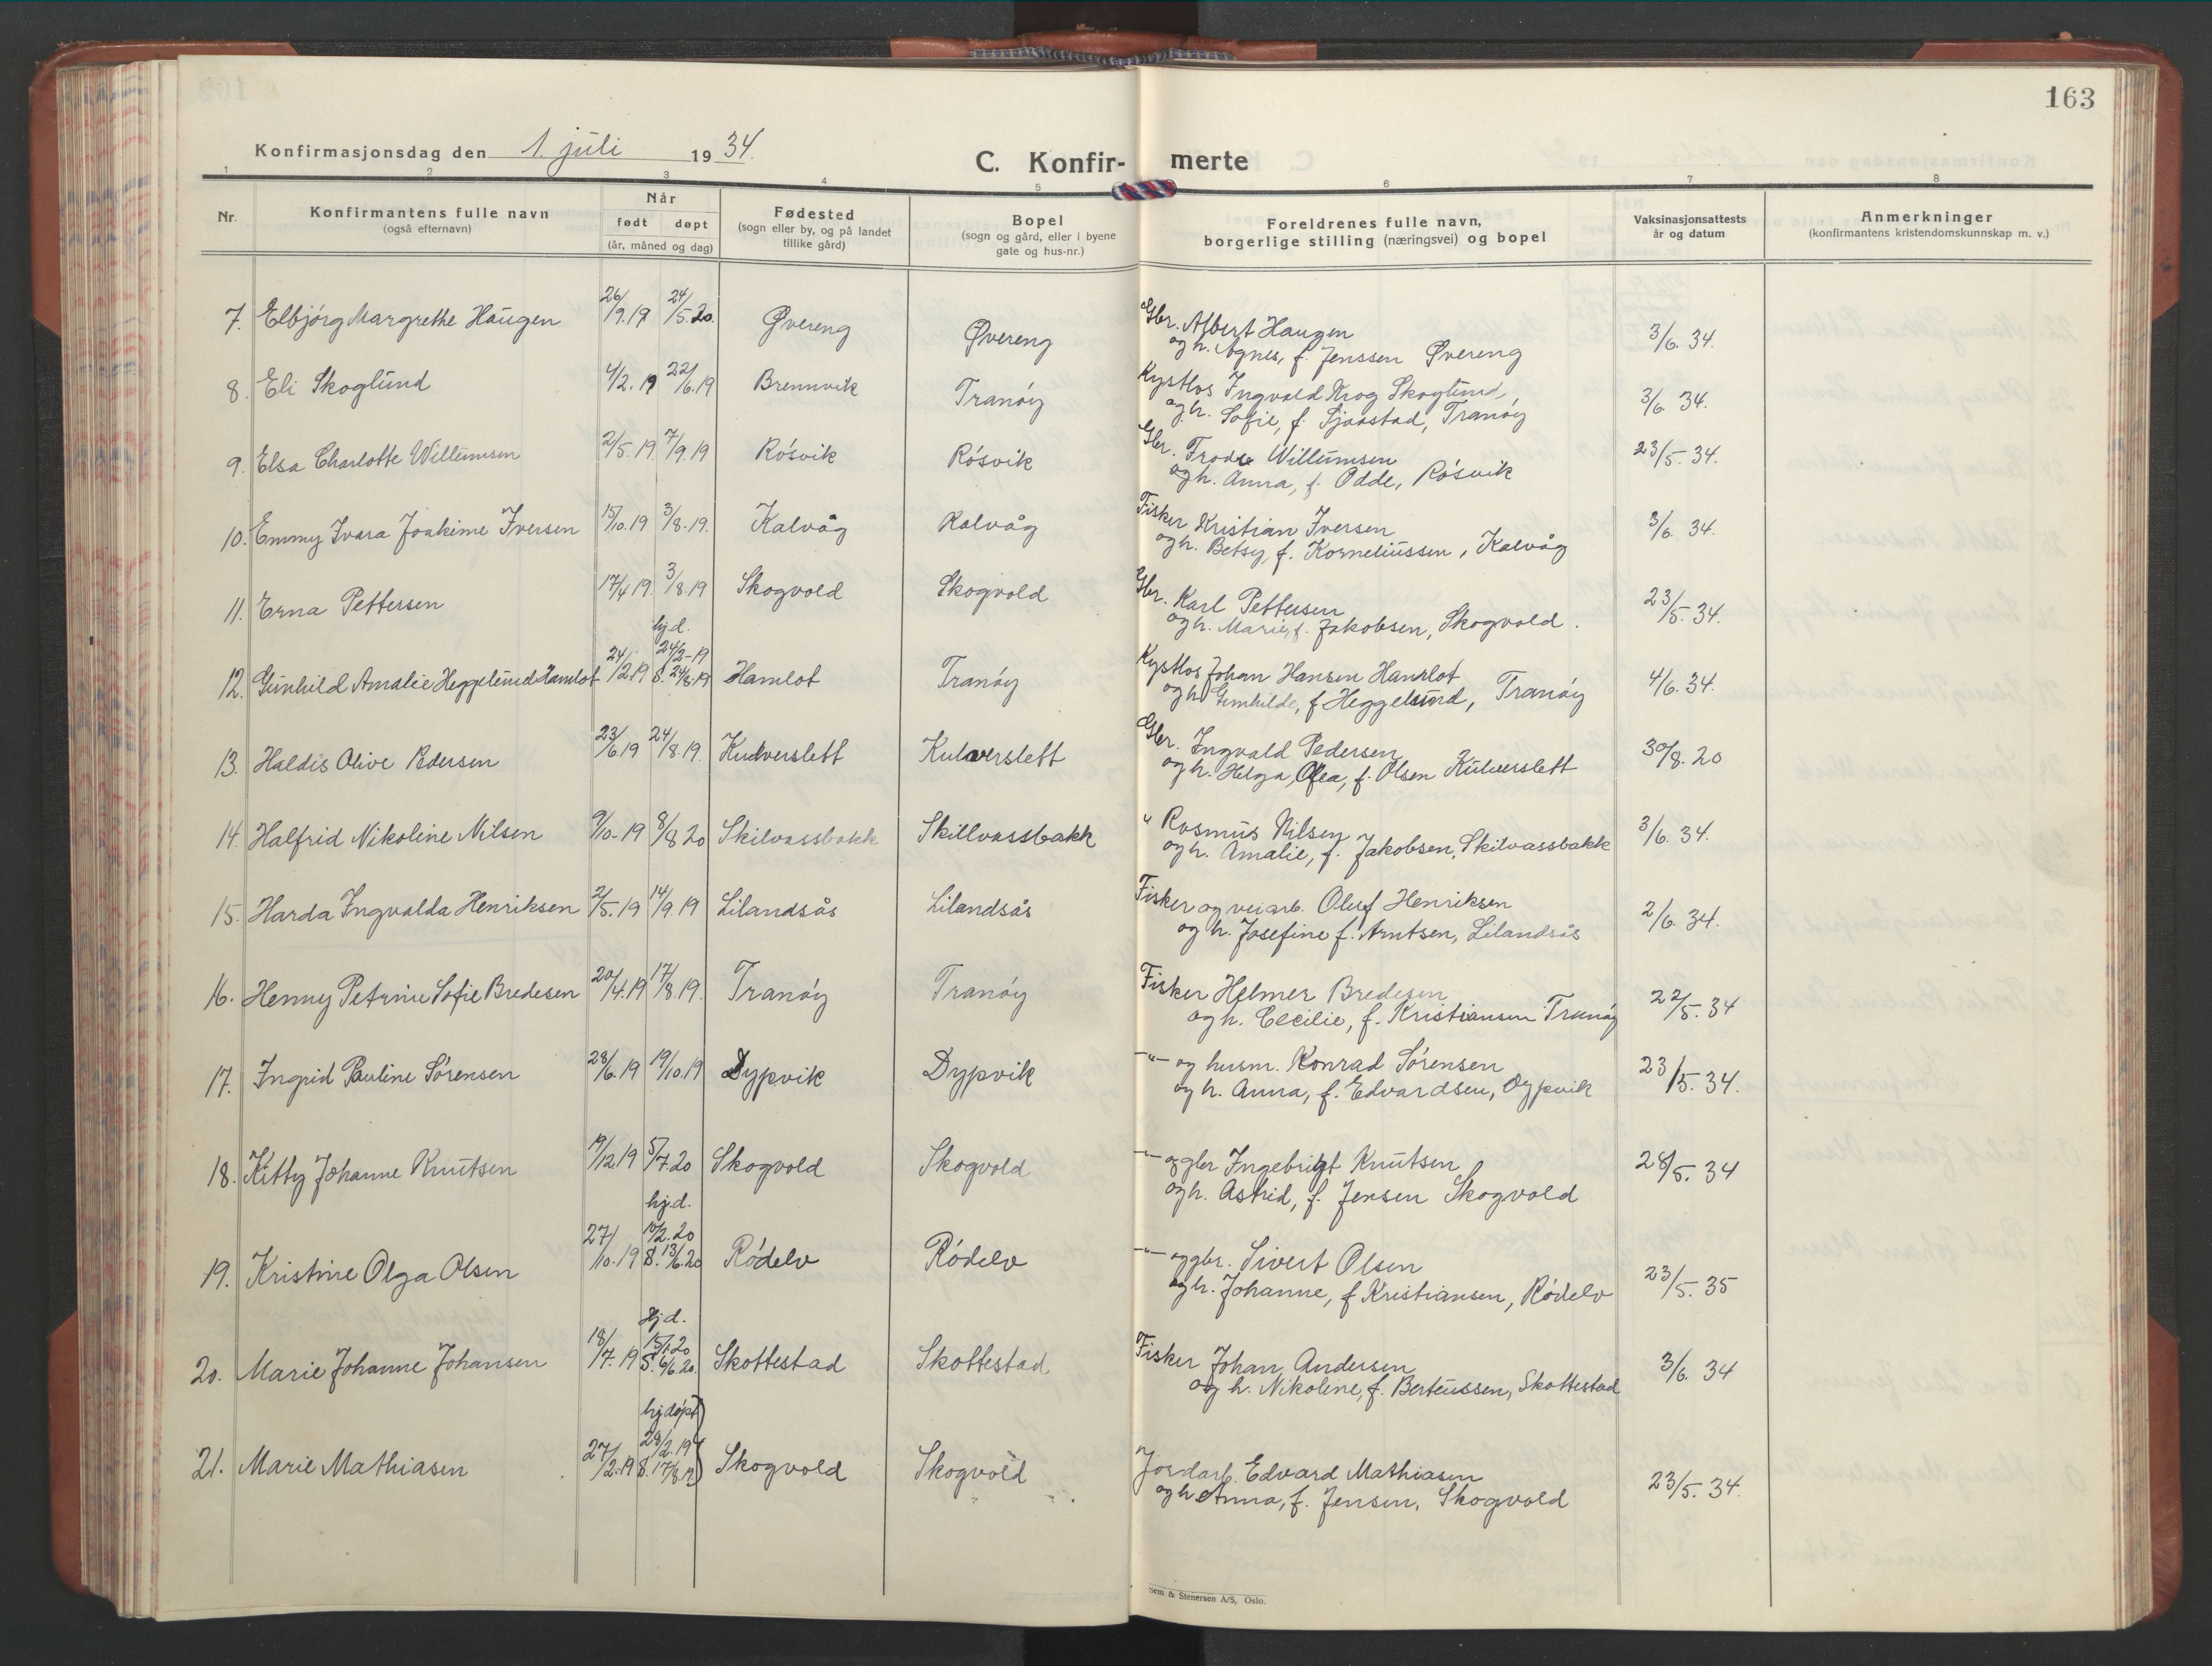 163
Konfirmasjonsdag den 1. juli 1934.
C. Konfir- merte
1 2 3 4 5 6 7 8
Nr.
Konfirmantens fulle navn
(også efternavn)
Når
født døpt
(år, måned og dag)
Fødested
(sogn eller by, og på landet
tillike gård)
Bopel
(sogn og gård, eller i byene
gate og hus-nr.)
Foreldrenes fulle navn,
borgerlige stilling (næringsvei) og bopel
Vaksinasjonsattests
år og datum
Anmerkninger
(konfirmantens kristendomskunnskap m. v.)
7. Elbjørg Margrethe Haugen 26/9.19 24/5.20 Øvereng Øvereng Gbr. Albert Haugen 3/6.34.
og h. Agnes, f. Jenssen Øvereng
8. Eli Skoglund 4/2.19 22/6.19 Brennvik Tranøy Kystlos Ingvald Krog Skoglund, 3/6.34.
og h. Sofie, f. Sjaastad, Tranøy
9. Elsa Charlotte Willumsen 2/5.19 7/9.19 Røsvik Røsvik Gbr. Frode Willumsen 23/5.34.
og h. Anna, f. Odde, Røsvik
10. Emmy Ivara Joakime Iversen 15/10.19 3/8.19. Kalvåg Kalvåg Fisker Kristian Iversen 3/6.34.
og h. Betsy, f. Korneliussen, Kalvåg
11. Erna Pettersen 17/4 19. 3/8.19 Skogvold Skogvold Gbr. Karl Pettersen 23/5.34.
og h. Marie, f. Jakobsen, Skogvold.
hj.d.
24/2-19
12. Gunhild Amalie Heggelund Hamlot 24/2.19 S. 24/8.19 Hamlot Tranøy Kystlos Johan Hansen Hamlot 4/6.34.
og h. Gunhilde, f Heggelund, Tranøy
13. Haldis Olive Pedersen 23/6.19 24/8.19. Kulverslett Kulverslett Gbr. Ingvald Pedersen 30/8.20
og h. Helga, Olea, f. Olsen Kulverslett
14. Halfrid Nikoline Nilsen 9/10-19 8/8 20 Skilvassbakk Skillvassbakk " Rasmus Nilsen 3/6.34.
og h. Amalie, f. Jakobsen, Skilvassbakk
15. Harda Ingvalda Henriksen 2/5.19 14/9.19 Lilandsås Lilandsås Fisker og veiarb. Oluf Henriksen 2/6.34.
og h. Josefine f. Arntsen, Lilandsås
16. Henny Petrine Sofie Bredesen 20/4.19 17/8.19. Tranøy Tranøy Fisker Helmer Bredesen 22/5.34
og h. Cecilie, f. Kristiansen Tranøy
17. Ingrid Pauline Sørensen 28/6.19 19/10.19 Dypvik Dypvik -"- og husm. Konrad Sørensen 23/5.34.
og h. Anna, f. Edvardsen, Dypvik
18. Kitty Johanne Knutsen 19/12 19 5/7.20 Skogvold Skogvold -"- og gbr Ingebrigt Knutsen 28/5.34
og h. Astrid, f. Jensen Skogvold
hj.d.
10/2.20
19. Kristine Olga Olsen 27/10.19 S. 13/6.20 Rødelv Rødelv -"- og gbr. Sivert Olsen 23/5.35
og h. Johanne, f Kristiansen, Rødelv
Hj.d.
15/1.20
20. Marie Johanne Johansen 18/7.19 S. 6/6.20. Skottestad Skottestad Fisker Johan Andersen 3/6.34
og h. Nikoline, f. Berteussen, Skottestad
hj.døpt
28/2.19
21. Marie Mathiasen 27/2.19 S. 17/8.19 Skogvold Skogvold Jordarb. Edvard Mathiasen 23/5.34.
og h Anna, f. Jensen, Skogvold
Sem & Stenersen A/S, Oslo.